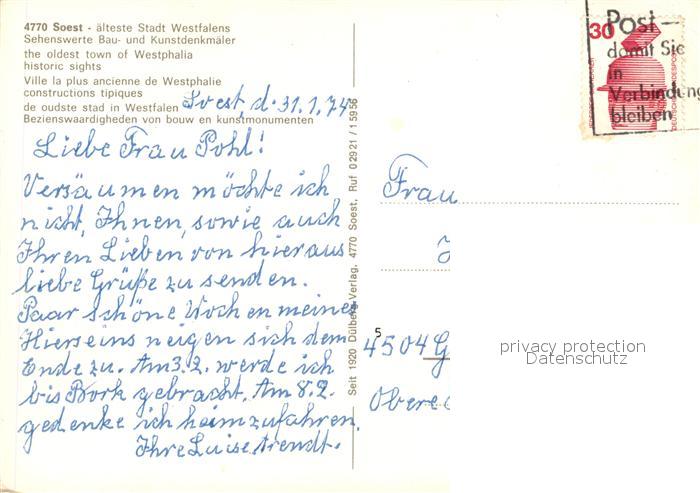 4770 Soest - älteste Stadt Westfalens
Sehenswerte Bau- und Kunstdenkmäler
the oldest town of Westphalia
historic sights
Ville la plus ancienne de Westphalie
constructions tipiques
de oudste stad in Westfalen
Bezienswaardigheden van bouw en kunstmonumenten
Soest, d. 31.1.74
Liebe Frau Pohl!
Versäumen möchte ich
nicht, Ihnen, sowie auch
Ihren Lieben von hieraus
liebe Grüße zu senden.
Paar schöne Wochen meines
Hierseins neigen sich dem
Ende zu. Am 3.2. werde ich
bis Bork gebracht. Am 8.2.
gedenke ich heimzufahren.
Ihre Luise Arendt.
Seit 1920 Dülberg-Verlag, 4770 Soest, Ruf 02921/15956
30
Post -
damit Sie
in
Verbindung
bleiben
DEUTSCHE BUNDESPOST
Frau
5
4504 G
Obere
privacy protection
Datenschutz